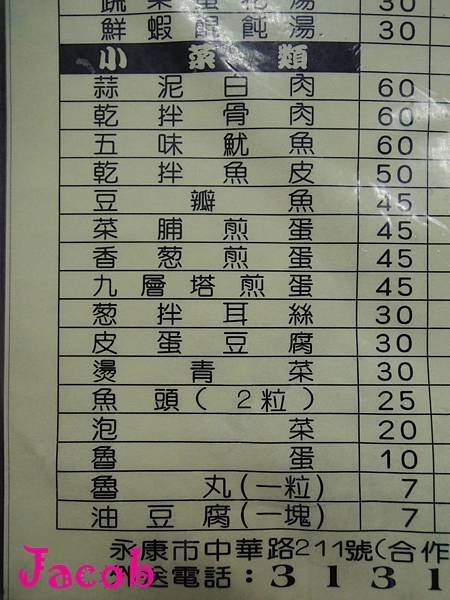 蛋花湯 30
鮮蝦餛飩湯 30
小菜類
蒜泥白肉 60
乾拌骨肉 60
五味魷魚 60
乾拌魚皮 50
豆瓣魚 45
菜脯煎蛋 45
香葱煎蛋 45
九層塔煎蛋 45
葱拌耳絲 30
皮蛋豆腐 30
燙青菜 30
魚頭(2粒) 25
泡菜 20
魯蛋 10
魯丸(一粒) 7
油豆腐(一塊) 7
永康市中華路211號(合作
送電話:3131
Jacob